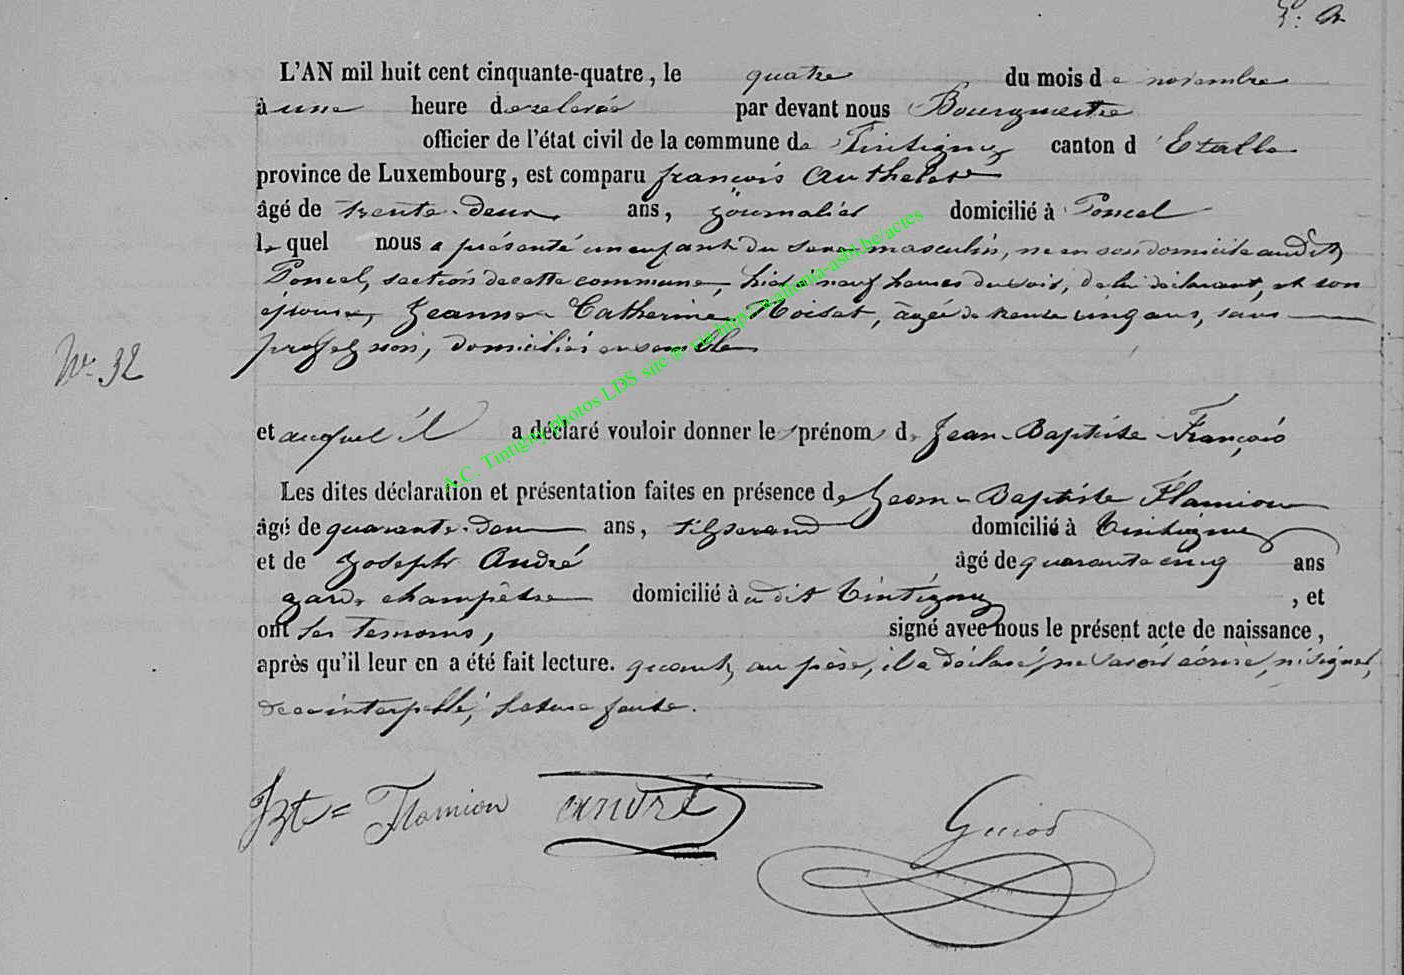 L'AN mil huit cent cinquante-quatre, le quatre du mois de novembre
à une heure de relevée par devant nous Bourgmestre
officier de l'état civil de la commune de Tintigny canton d'Etalle
province de Luxembourg, est comparu françois Authelet
âgé de trente-deux ans, journalier domicilié à Poncel
lequel nous a présenté un enfant du sexe masculin, né en son domicile audit
Poncel, section de cette commune, hier à neuf heures du soir, de lui déclarant, et son
épouse, Jeanne Catherine Noiset, âgée de trente cinq ans, sans
profession, domiciliés ensemble
N° 32
et auquel il a déclaré vouloir donner les prénoms de Jean-Baptiste-François
Les dites déclaration et présentation faites en présence de Jean-Baptiste Flamion
âgé de quarante-deux ans, tisserand domicilié à Tintigny
et de Joseph André âgé de quarante cinq ans
garde champêtre domicilié à udit Tintigny, et
ont les témoins, signé avec nous le présent acte de naissance,
après qu'il leur en a été fait lecture. quant au père, il a déclaré ne savoir écrire, ni signer,
de ce interpellé, lecture faite.
JBt = Flamion andré
A.C. Tintigny photos LDS site © via http://wallonia-asbl.be/actes